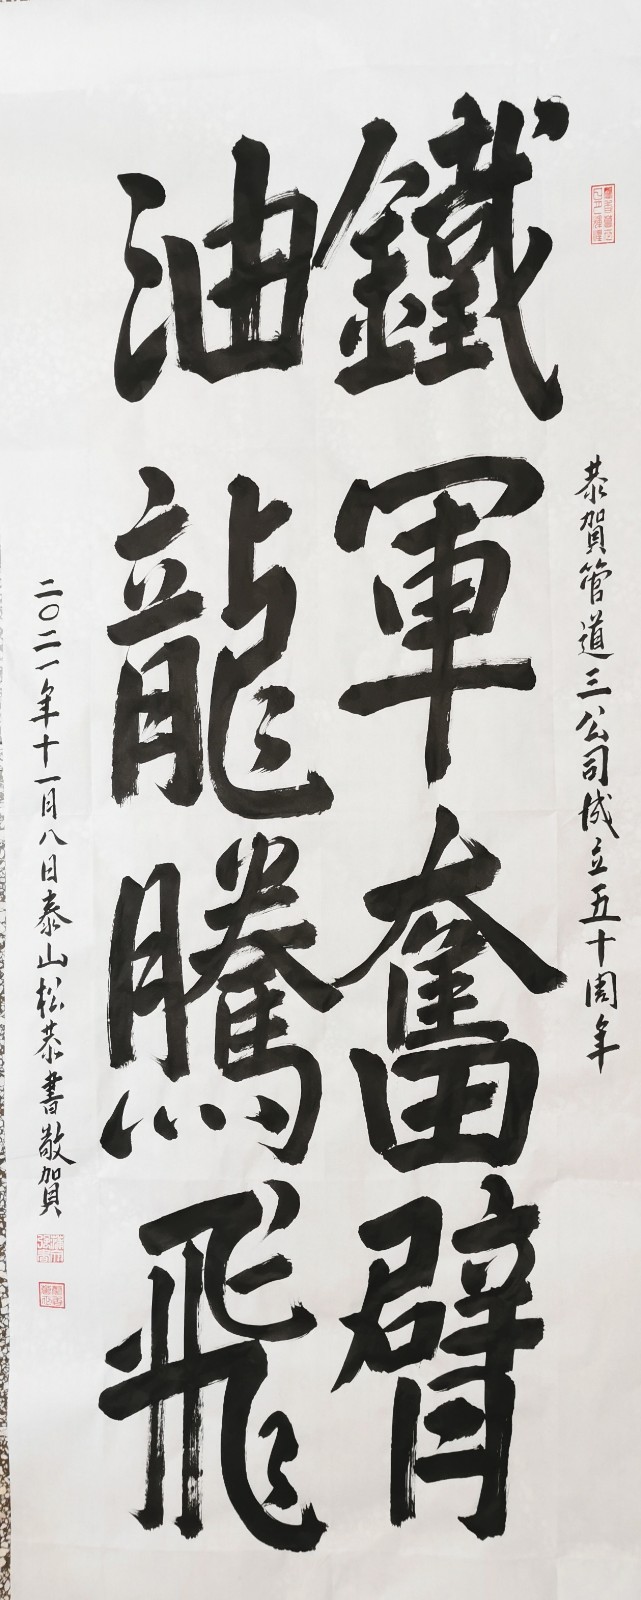 恭賀管道三公司成立五十周年
鐵軍奮臂
油龍騰飛
二〇二一年十一月八日泰山松恭書敬賀